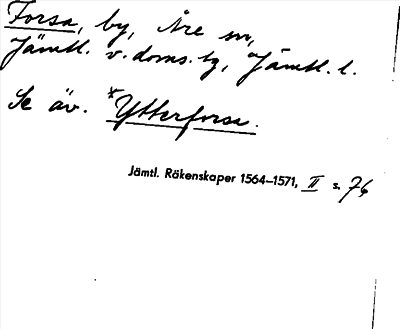 Forsa, by, Åre sn,
Jämtl. v. doms. tg, Jämtl. l.
Se äv. *Ytterforsa.
Jämtl. Räkenskaper 1564–1571, II s. 76